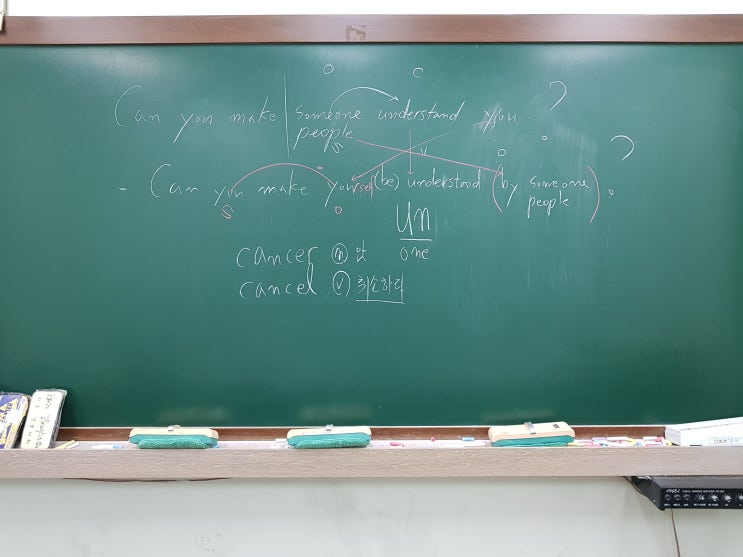 o c
Can you make someone understand you ?
people
s v o
- Can you make yourself (be) understood (by someone ?
people) .
s o
un
one
cancer ⓝ 암
cancel ⓥ 취소하다